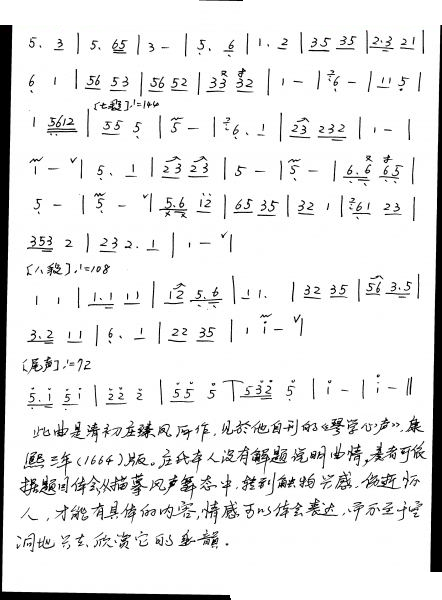 5. 3 | 5. 65 | 3 - | 5. 6 | 1. 2 | 35 35 | 2.3 21 |
6 1 | 56 53 | 56 52 | 33 32 | 1 - | 6 - | 11 5 |
[七段] ♩=144
1 5612 | 55 5 | 5 - | 6. 1 | 23 232 | 1 - |
1 - ∨ | 5. 1 | 23 23 | 5 - | 5 - | 6.6 65 |
5 - | 5 - ∨ | 5.6 12 | 65 35 | 32 1 | 61 23 |
353 2 | 23 2. 1 | 1 - ∨ |
[八段] ♩=108
1 1 | 1.1 11 | 12 5.6 | 11. | 32 35 | 56 3.5 |
3.2 11 | 6. 1 | 22 35 | 1 1 - ∨ |
[尾声] ♩=72
5.1 51 | 22 2 | 55 5 | 532 5 | 1 - | 1 - ‖
此曲是清初庄臻凤所作,见於他自刊的《琴学心声》,康
熙三年(1664)版。庄氏本人没有解题说明曲情,奏者可依
据题目体会从描摹风声舞态中,转到触物兴感、怀
人,才能有具体的内容,情感可以体会表达,而不至于空
洞地 欣赏它的音韻。